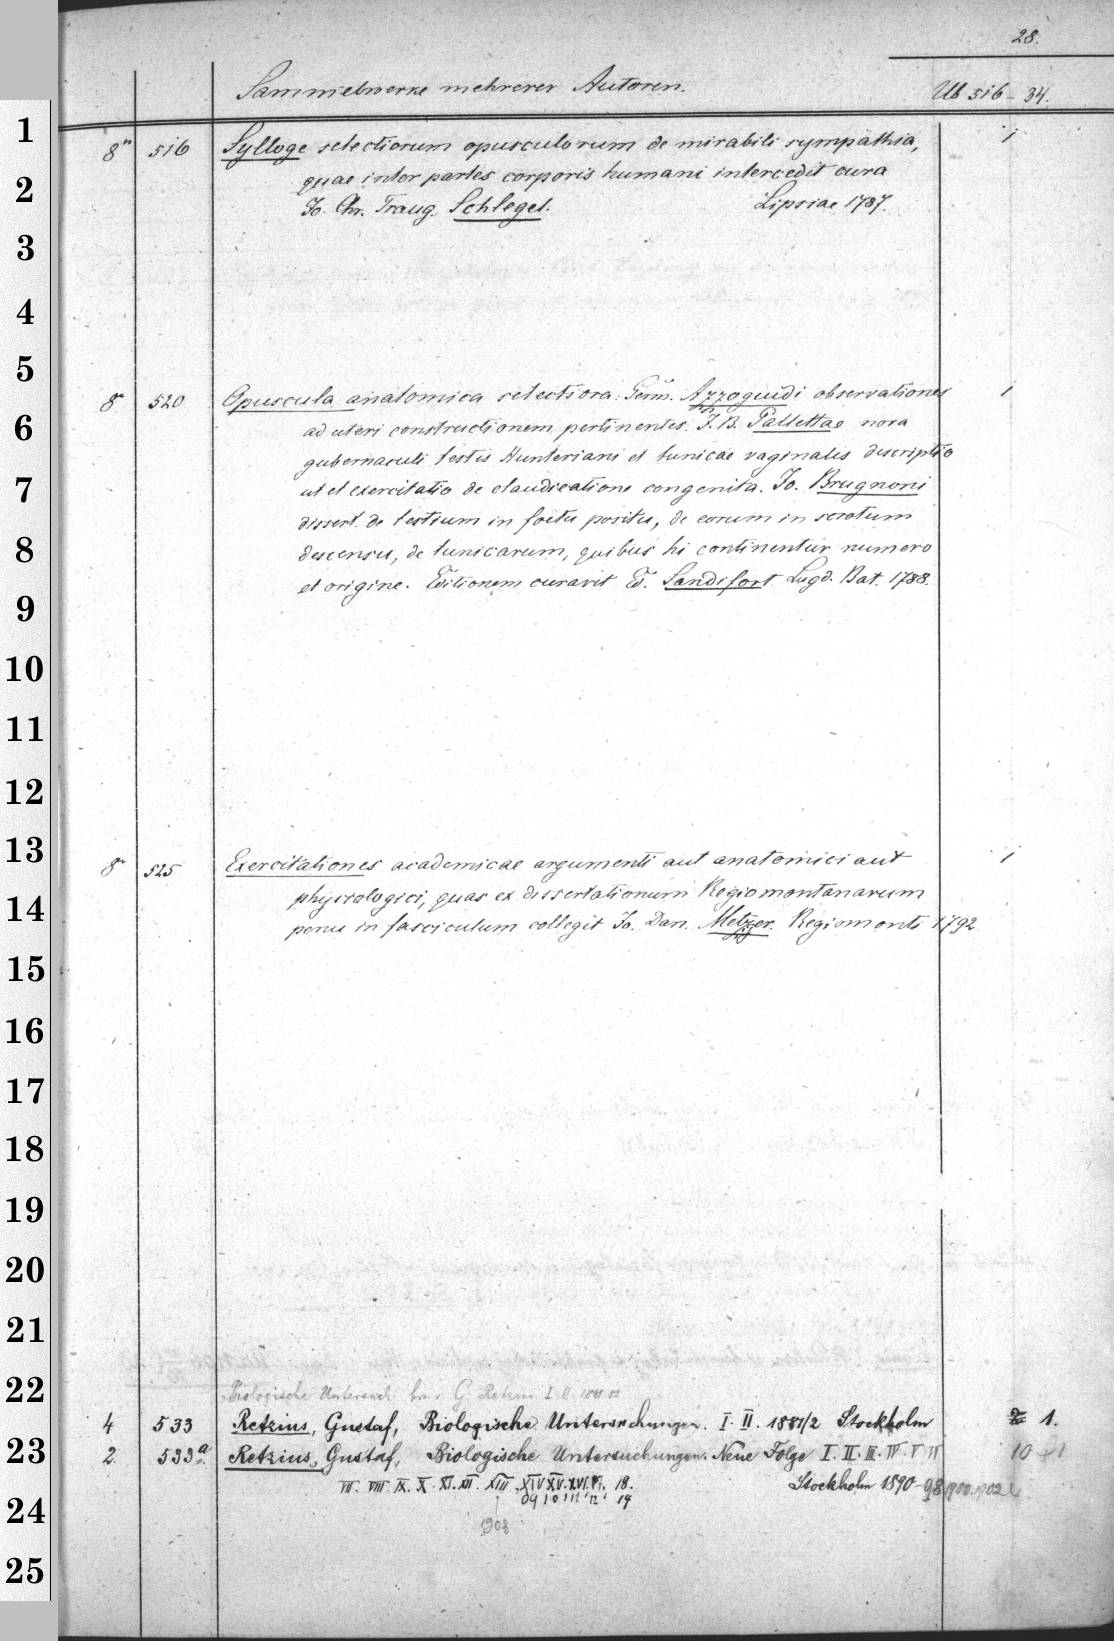 28.
Sammelwerke mehrerer Autoren. Ub 516 - 34.
1
8° 516 Sylloge selectiorum opusculorum de mirabili sympathia, 1
2
quae inter partes corporis humani intercedit cura
Jo. Chr. Traug. Schlegel. Lipsiae 1787.
3
4
5
8° 520 Opuscula anatomica selectiora: Germ. Azzoguidi observationes 1
6
ad uteri constructionem pertinentes. J. B. Pallettae nova
gubernaculi testis Hunteriani et tunicae vaginalis descriptio
7
ut et exercitatio de claudicatione congenita. Jo. Brugnoni
dissert. de testium in foetu positu, de eorum in scrotum
8
descensu, de tunicarum, quibus hi continentur numero
et origine. Editionem curavit Ed. Sandifort Lugd. Bat. 1788.
9
10
11
12
13
8° 525 Exercitationes academicae argumenti aut anatomici aut 1
physiologici, quas ex dissertationum Regiomontanarum
14
penu in fasciculum collegit Jo. Dan. Metzger. Regiomonti 1792
15
16
17
18
19
20
21
22
Biologische Untersuch. v. G. Retzius I. II. 1881.82
4 533 Retzius, Gustaf, Biologische Untersuchungen. I. II. 1881/2 Stockholm 1.
23
2. 533a. Retzius, Gustaf, Biologische Untersuchungen. Neue Folge I. II. III. IV. V. VI 10 + 1
VII. VIII. IX. X. XI. XII. XIII. XIV XV. XVI. 18. Stockholm 1890-98 1900. 1902
24
09 10 11 12 14
1908
25